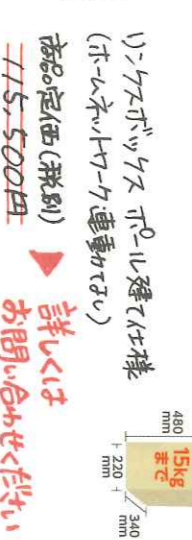 リンクスボックス ポール建て仕様
(ホームネットワーク連動なし)
商品定価(税別)
115,500円
詳しくは
お問い合わせください
15kg
まで
480
mm
220
mm
340
mm